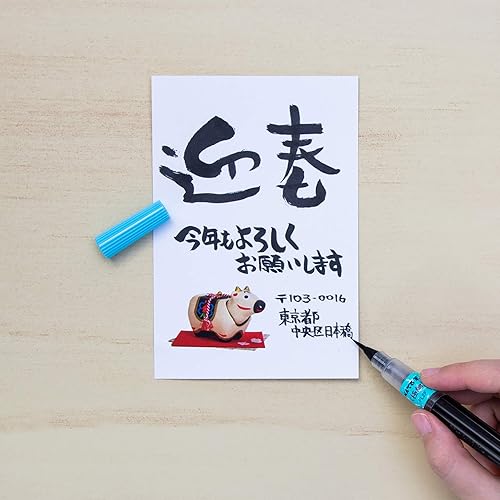 迎春
今年もよろしく
お願いします
〒103-0016
東京都
中央区日本橋